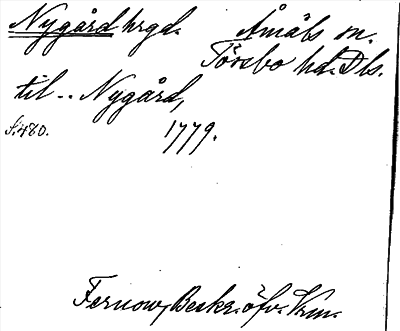 Nygård hrgd. Åmåls m.
Tössbo hd. Dls.
til -- Nygård,
s. 480. 1779.
Fernow, Beskr. öfv. Vrm.